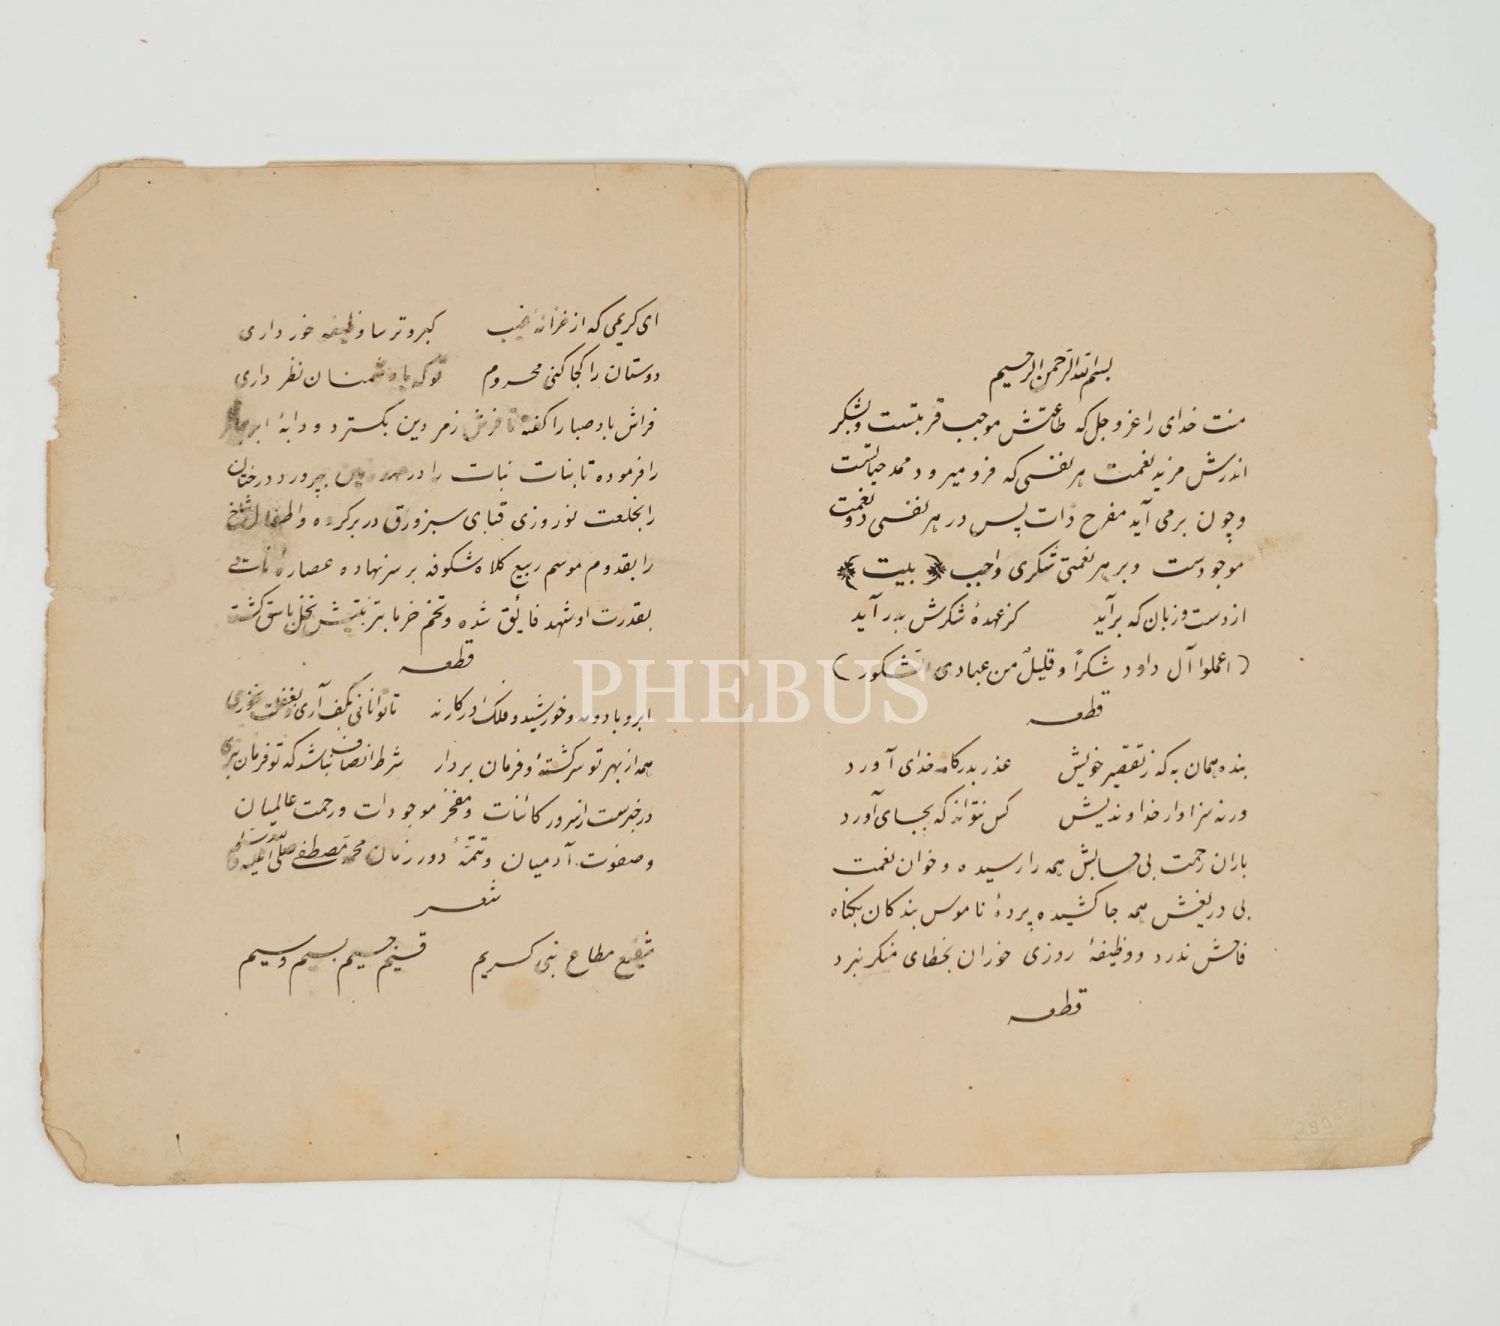 بسم الله الرحمن الرحیم
منت خدای را عز و جل که طاعتش موجب قربتست و بشکر
اندرش مزید نعمت هر نفسی که فرو میرود ممد حیاتست
و چون بر می آید مفرح ذات پس در هر نفسی دو نعمت
موجودست و بر هر نعمتی شکری واجب بیت
از دست و زبان که برآید کز عهدهٔ شکرش بدر آید
(اعملوا آل داود شکراً و قلیلٌ من عبادی الشکور)
قطعه
بنده همان به که ز تقصیر خویش عذر بدرگاه خدای آورد
ورنه سزاوار خداوندیش کس نتواند که بجای آورد
باران رحمت بی حسابش همه را رسیده و خوان نعمت
بی دریغش همه جا کشیده پردهٔ ناموس بندگان بگناه
فاحش ندرد و وظیفهٔ روزی خوران بخطای منکر نبرد
قطعه
ای کریمی که از خزانهٔ غیب گبر و ترسا وظیفه خور داری
دوستان را کجا کنی محروم تو که با دشمنان نظر داری
فراش باد صبا را گفته تا فرش زمردین بگسترد و دایهٔ ابر بهار
را فرموده تا بنات نبات را در مهد زمین بپرورد درختان
را بخلعت نوروزی قبای سبز ورق در بر کرده و اطفال شاخ
را بقدوم موسم ربیع کلاه شکوفه بر سر نهاده عصارهٔ
بقدرت او شهد فایق شده و تخم خرما بتربیتش نخل باسق گشته
قطعه
ابر و باد و مه و خورشید و فلک در کارند تا تو نانی بکف آری و بغفلت نخوری
همه از بهر تو سرگشتهٔ و فرمان بردار شرط انصاف نباشد که تو فرمان نبری
در خبرست از سرور کائنات و مفخر موجودات و رحمت عالمیان
و صفوت آدمیان و تتمهٔ دور زمان محمد مصطفی صلی الله علیه و سلم
شعر
شفیع مطاع نبی کریم قسیم جسیم بسیم وسیم
PHEBUS